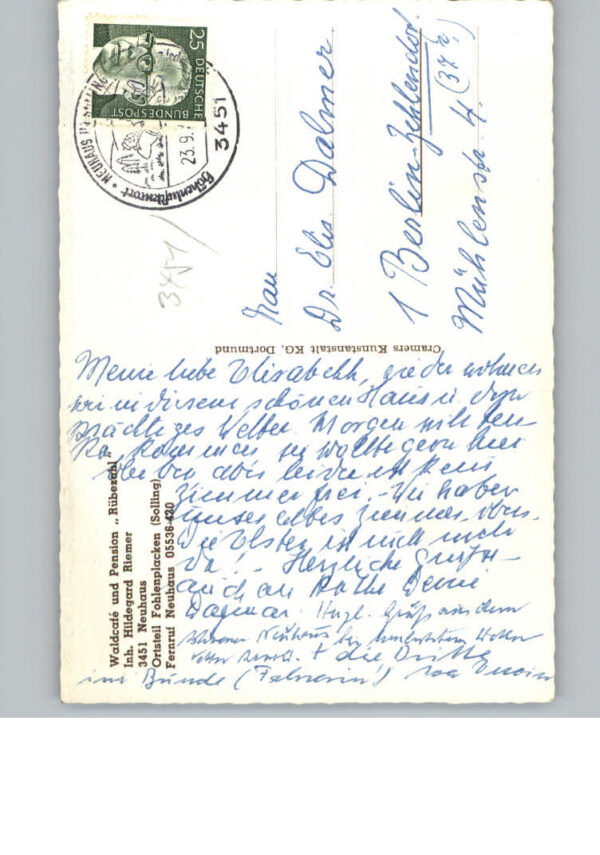 Waldcafé und Pension „Rübezahl"
Inh. Hildegard Riemer
3451 Neuhaus
Ortsteil Fohlenplacken (Solling)
Fernruf Neuhaus 05536-420
Cramers Kunstanstalt KG, Dortmund
25
DEUTSCHE
BUNDESPOST
NEUHAUS
23.9.
3451
Höhenluftkurort
3451
Frau
Dr. Elis. Dalmer
1 Berlin-Zehlendorf
Mühlenstr. 4 (37?)
Meine liebe Elisabeth, wieder wohnen
wir in diesem schönen Haus u. dazu
prächtiges Wetter. Morgen will
kommen, sie wollte gern hier
bleiben aber leider ist kein
Zimmer frei. - Wir haben
unser altes Zimmer
ist nicht mehr
da! - Herzliche Grüße
auch an Käthe Deine
Dagmar. Herzl. Grüße aus dem
Neuhaus bei
+ die Dritte
im Bunde (Fahrerin!)